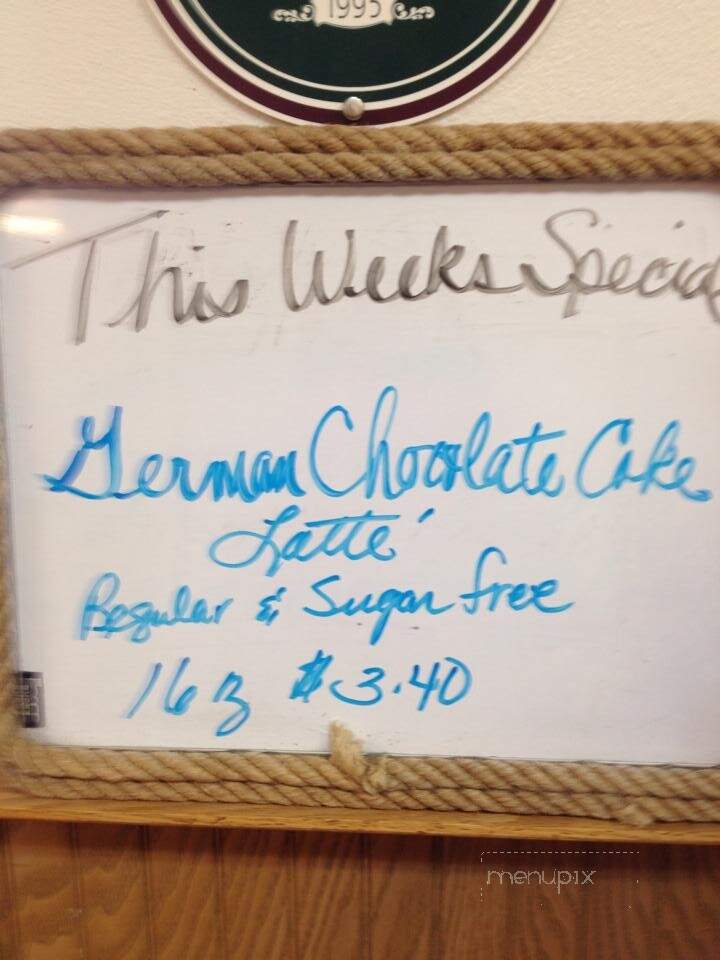 1995
This Weeks Special
German Chocolate Cake
Latte'
Regular & Sugar free
16 oz $3.40
menupix